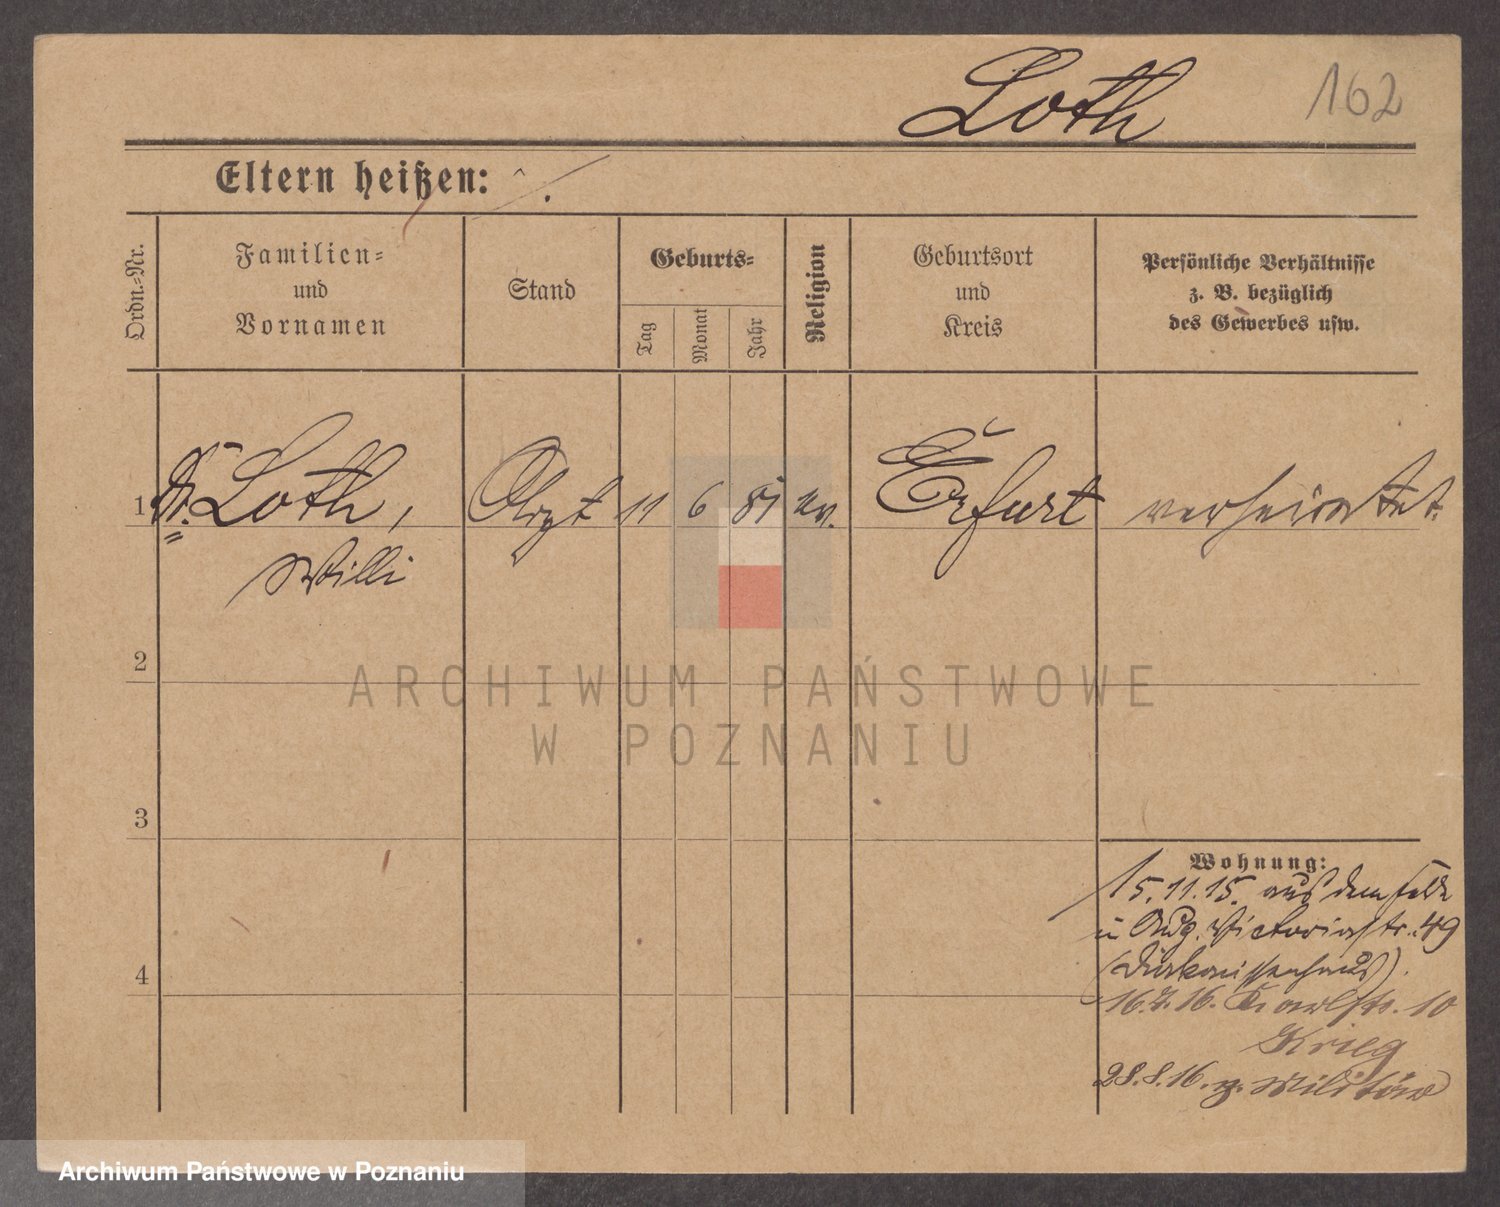 Loth 162
Eltern heißen: ./.
Ordn.-Nr.
Familien-
und
Vornamen
Stand
Geburts-
Tag
Monat
Jahr
Religion
Geburtsort
und
Kreis
Persönliche Verhältnisse
z. B. bezüglich
des Gewerbes usw.
1 Dr. Loth, Arzt 11 6 81 ev. Erfurt verheiratet.
Willi
2
ARCHIWUM PAŃSTWOWE
W POZNANIU
3
Wohnung:
15.11.15. aus dem Felde
n Aug. Victoriastr. 49
(Diakonissenhaus).
4
16.7.16. Karlstr. 10
Krieg
28.8.16. z. Militär
Archiwum Państwowe w Poznaniu